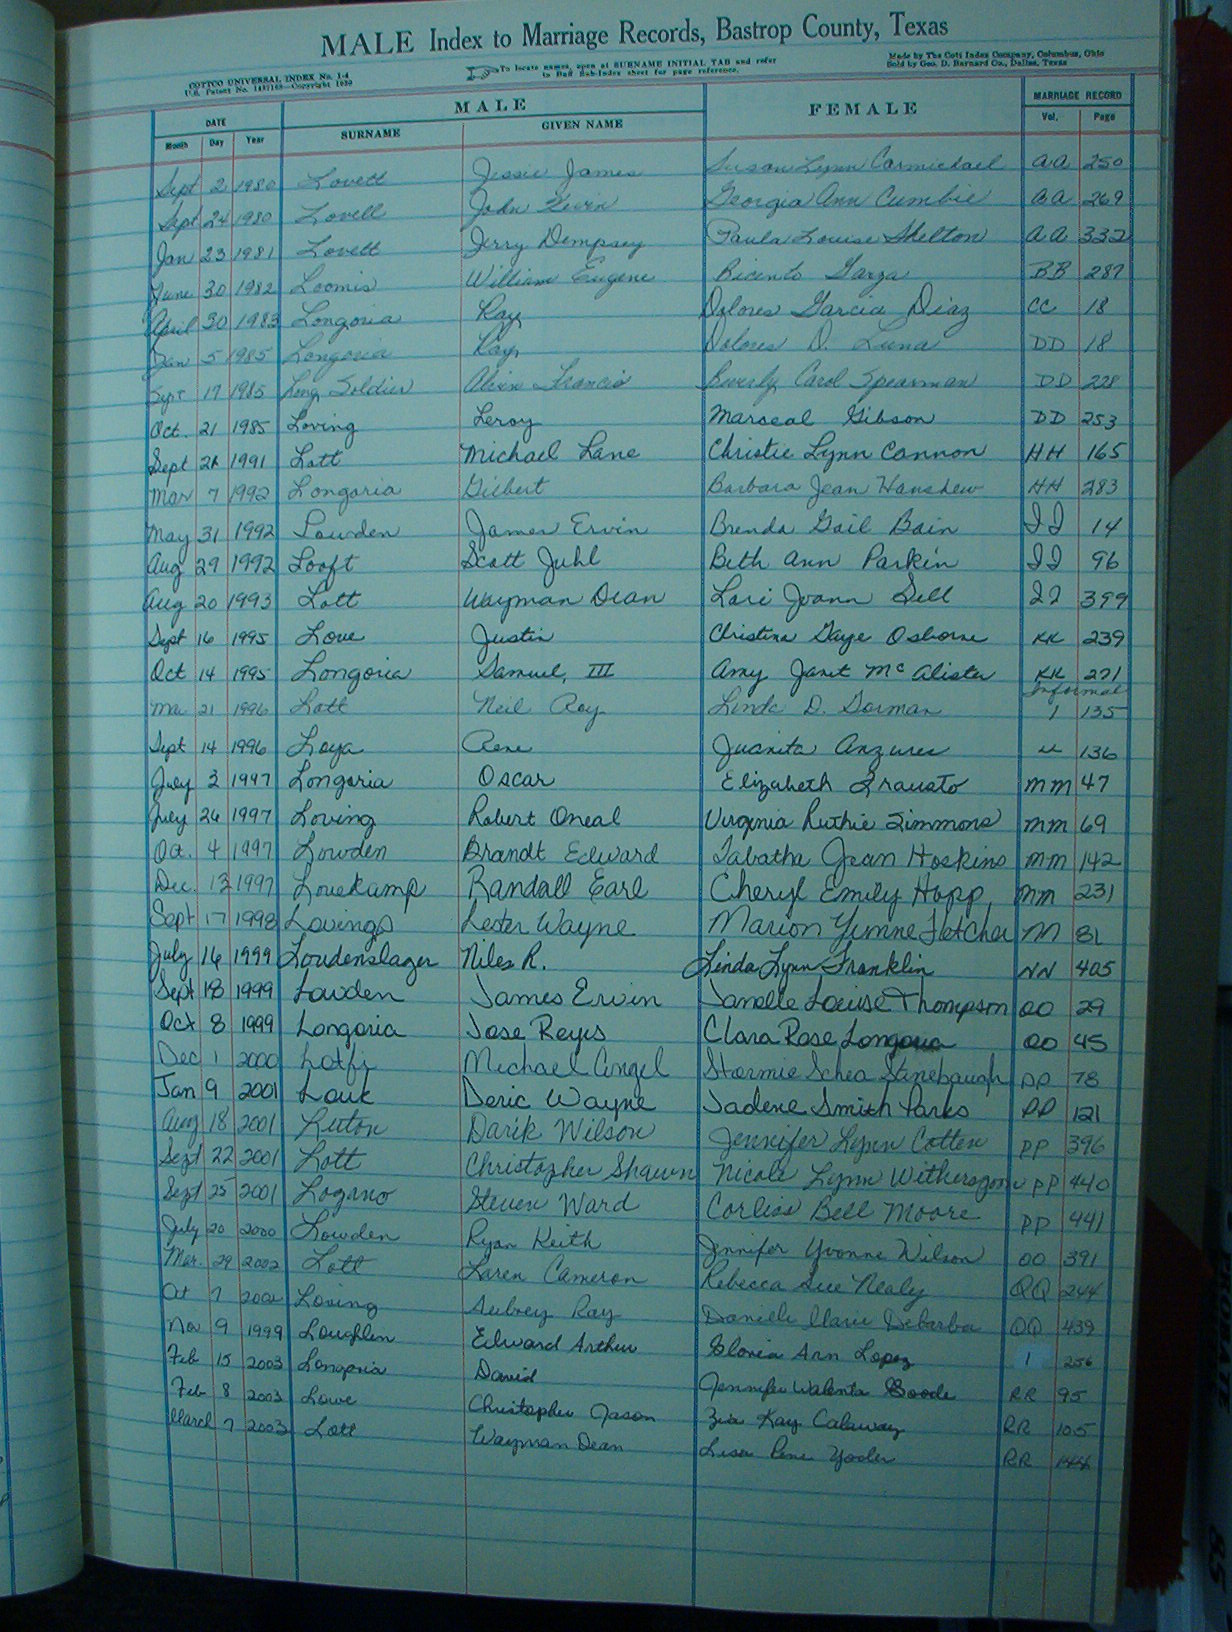 MALE Index to Marriage Records, Bastrop County, Texas
COTTCO UNIVERSAL INDEX No. 1-4
U.S. Patent No. Copyright
To locate names, open at SURNAME INITIAL TAB and refer
to Buff Sub-Index sheet for page reference.
Made by The Cott Index Company, Columbus, Ohio
Sold by Geo. D. Barnard Co., Dallas, Texas
DATE MALE FEMALE MARRIAGE RECORD
Month Day Year SURNAME GIVEN NAME Vol. Page
Sept 2 1980 Lovett Jessie James Susan Lynn Carmichael AA 250
Sept 24 1980 Lovell John Kevin Georgia Ann Cumbie AA 269
Jan 23 1981 Lovett Jerry Dempsey Paula Louise Shelton AA 332
June 30 1982 Loomis William Eugene Garza BB 287
April 30 1983 Longoria Ray Dolores Garcia Diaz CC 18
Jan 5 1985 Longoria Ray Dolores D. Luna DD 18
Sept 17 1985 Long Soldier Francis Beverly Carol Spearman DD 228
Oct. 21 1985 Loving Leroy Gibson DD 253
Sept 21 1991 Lott Michael Lane Christie Lynn Cannon HH 165
Mar 7 1992 Longoria Gilbert Barbara Jean Hanshew HH 283
May 31 1992 Lowden James Ervin Brenda Gail Bain II 14
Aug 29 1992 Looft Scott Juhl Beth Ann Parkin II 96
Aug 20 1993 Lott Wayman Dean Lori Joann Sell II 399
Sept 16 1995 Love Justin Christina Gaye Osborne KK 239
Oct 14 1995 Longoria Samuel, III Amy Janet McAlister KK 271
Informal
Mar 21 1996 Lott Neil Roy Linda D. Dorman 1 135
Sept 14 1996 Loya Rene Juanita 136
July 3 1997 Longoria Oscar Elizabeth Frausto MM 47
July 26 1997 Loving Robert Oneal Virginia Ruthie Simmons MM 69
Oct. 4 1997 Lowden Brandt Edward Tabatha Jean Hoskins MM 142
Dec. 13 1997 Louekamp Randall Earl Cheryl Emily Hopp MM 231
Sept 17 1998 Lovings Lester Wayne Marion Yvonne Fletcher M 81
July 16 1999 Loudenslager Niles R. Linda Lynn Franklin NN 405
Sept 18 1999 Lowden James Ervin Janelle Louise Thompson OO 29
Oct 8 1999 Longoria Jose Reyes Clara Rose Longoria OO 45
Dec 1 2000 Michael Angel Stormie Schea Stinebaugh PP 78
Jan 9 2001 Louk Doric Wayne Jadene Smith Parks PP 121
Aug 18 2001 Luton Darik Wilson Jennifer Lynn Cotten PP 396
Sept 22 2001 Lott Christopher Shawn Nicole Lynn Witherspoon PP 440
Sept 25 2001 Logano Steven Ward Corliss Bell Moore PP 441
July 20 2000 Lowden Ryan Keith Jennifer Yvonne Wilson OO 391
Mar. 29 2002 Lott Laren Cameron Rebecca Sue Nealy QQ 244
Oct 7 2002 Loving Aubrey Ray Danielle Marie Debarba QQ 439
Nov 9 1999 Loughlin Edward Arthur Gloria Ann Lopez 1 256
Feb 15 2003 Longoria David Jennifer Walenta Goode RR 95
Feb 8 2003 Lowe Christopher Jason Kay Calaway RR 105
March 7 2003 Lott Wayman Dean Lisa Rene Yoder RR 144